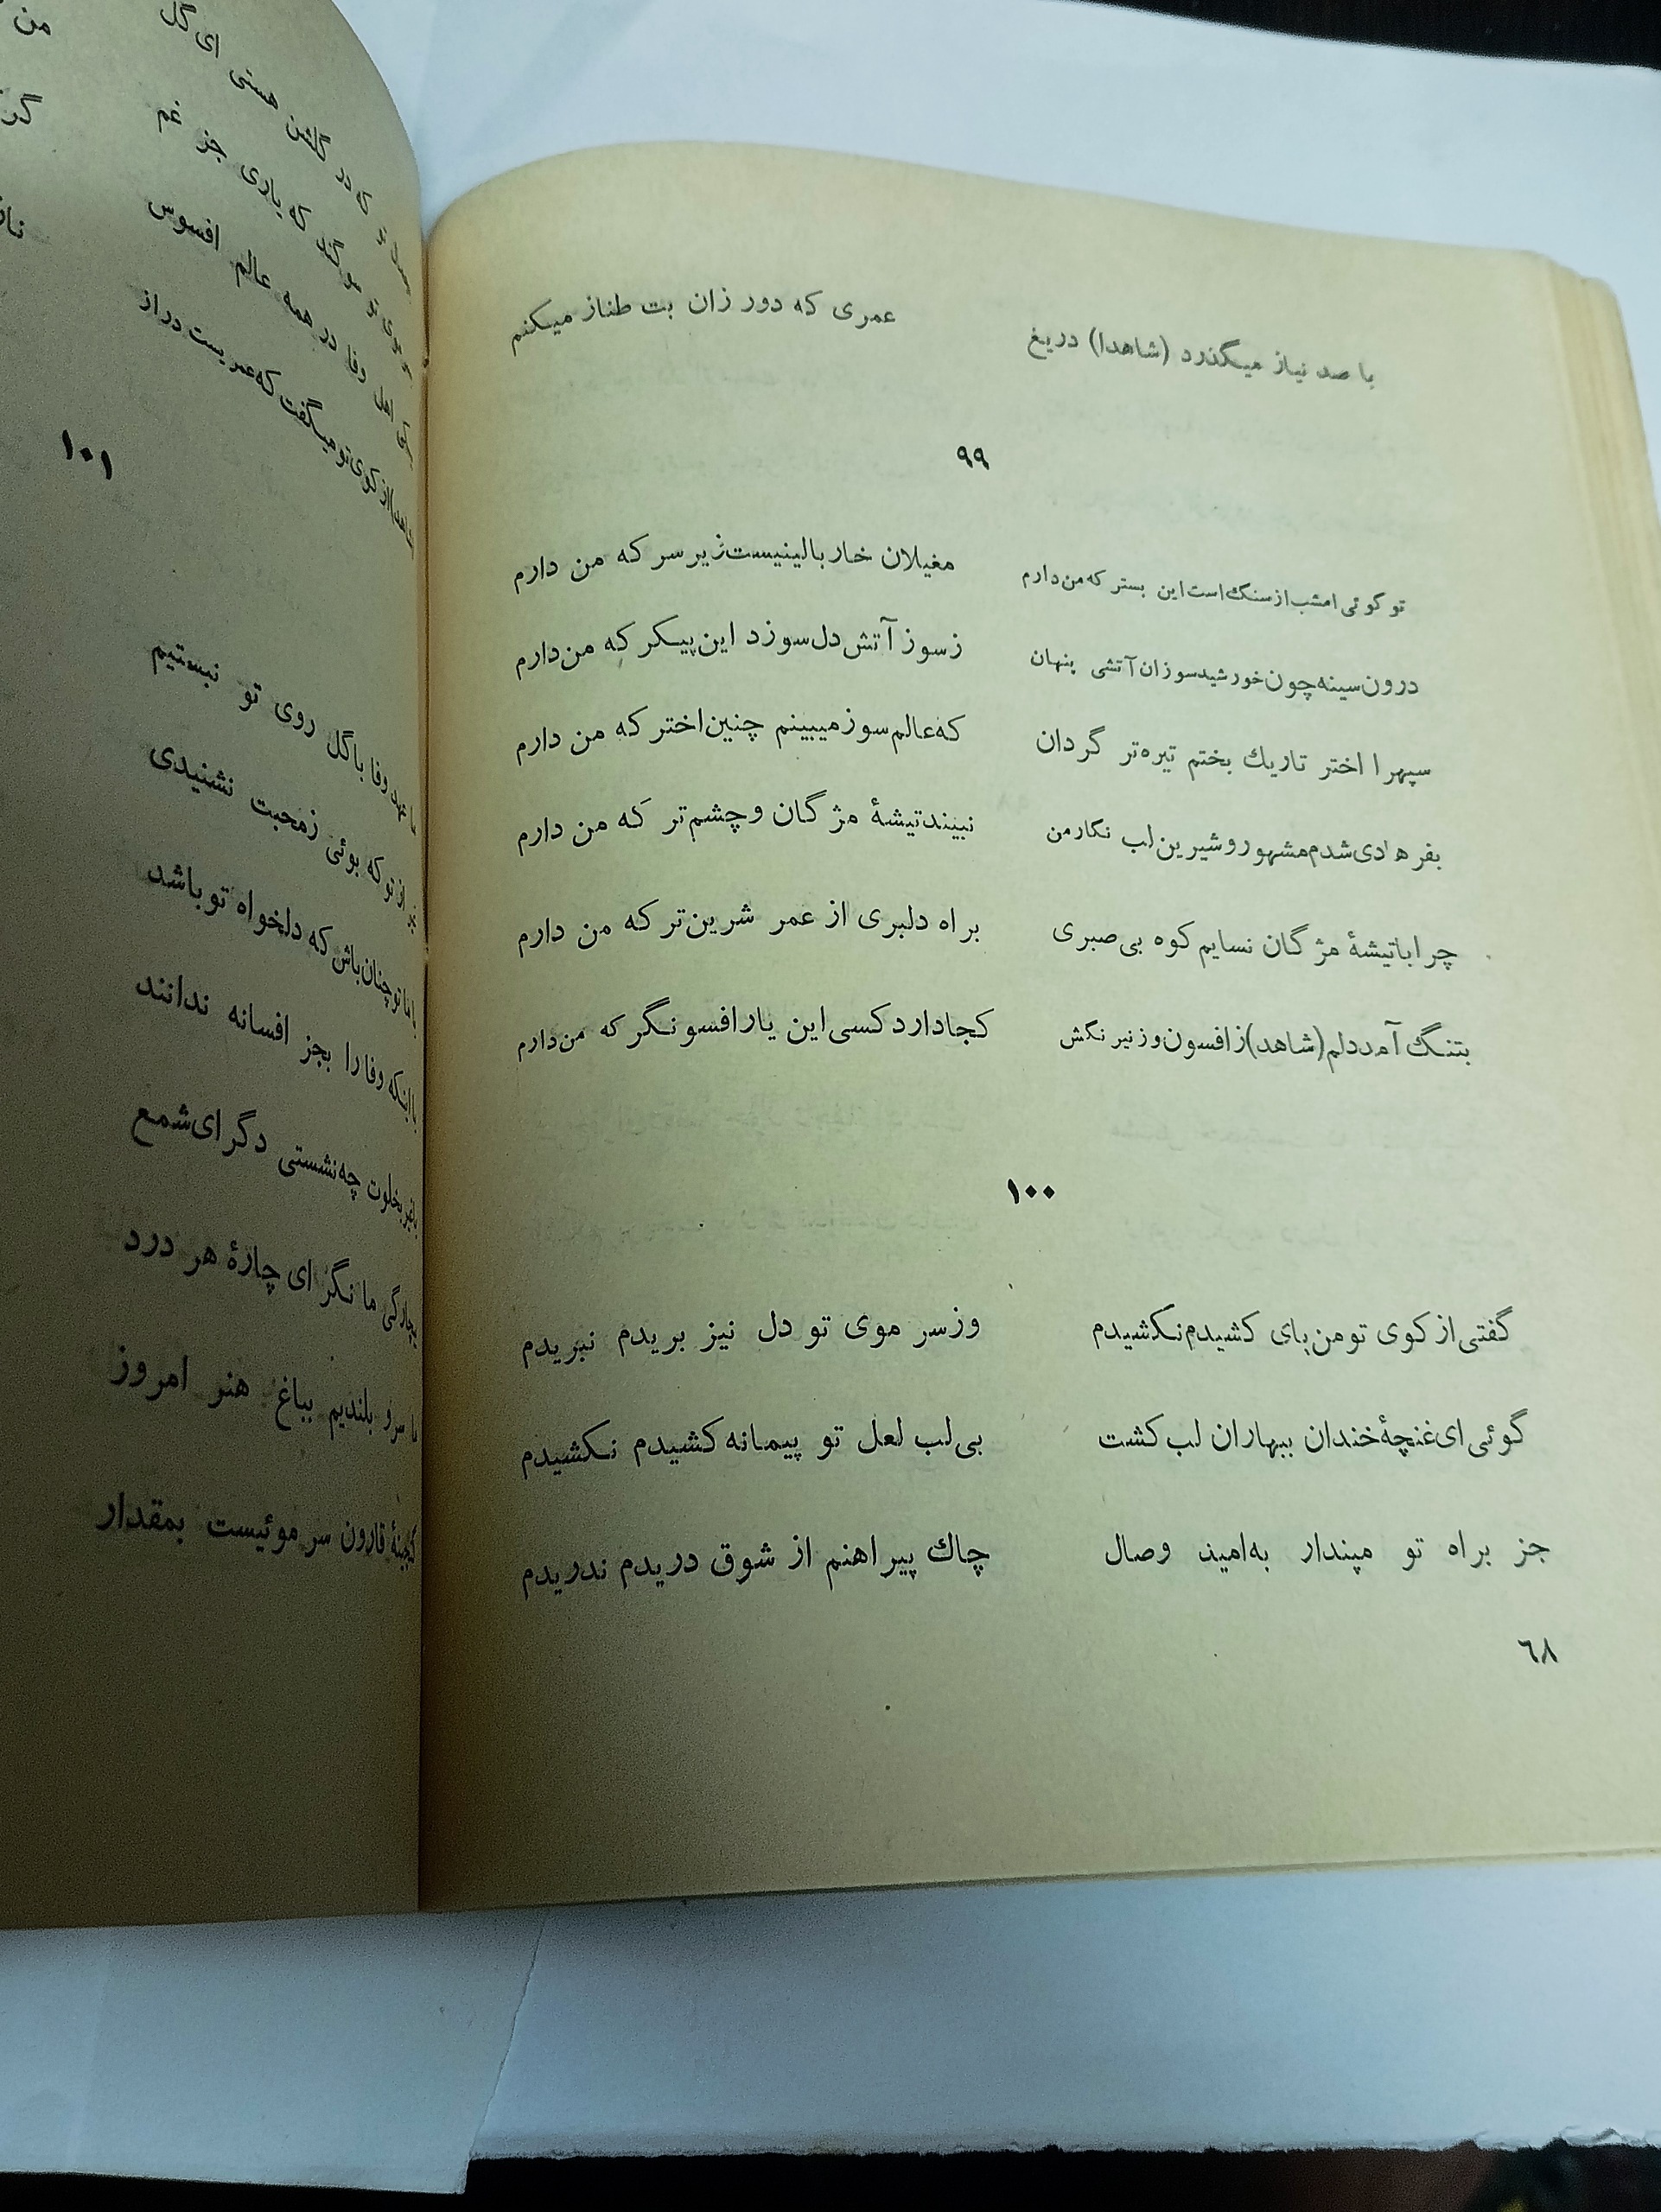 با صد نیاز میگذرد (شاهدا) دریغ    عمری که دور زان بت طناز میکنم
۹۹
تو گوئی امشب از سنگ است این بستر که من دارم    مغیلان خار بالینیست زیر سر که من دارم
درون سینه چون خورشید سوزان آتشی پنهان    ز سوز آتش دل سوزد این پیکر که من دارم
سپهرا اختر تاریك بختم تیره‌تر گردان    که عالم سوز میبینم چنین اختر که من دارم
بفرهادی شدم مشهور و شیرین لب نگار من    نبیند تیشهٔ مژگان و چشم تر که من دارم
چرا با تیشهٔ مژگان نسایم کوه بی‌صبری    براه دلبری از عمر شرین‌تر که من دارم
بتنگ آمد دلم (شاهد) ز افسون و ز نیرنگش    کجا دارد کسی این یار افسونگر که من دارم
۱۰۰
گفتی از کوی تو من پای کشیدم نکشیدم    وز سر موی تو دل نیز بریدم نبریدم
گوئی ای غنچهٔ خندان ببهاران لب کشت    بی لب لعل تو پیمانه کشیدم نکشیدم
جز براه تو مپندار به‌امید وصال    چاك پیراهنم از شوق دریدم ندریدم
۶۸
که در گلشن هستی ای گل    من
تو سوگند که یاری جز غم
اهل وفا در همه عالم افسوس
از کوی تو میگفت که عمریست دراز
۱۰۱
ما عهد وفا با گل روی تو نبستیم
تو که بوئی ز محبت نشنیدی
با ما تو چنان باش که دلخواه تو باشد
با اینکه وفا را بجز افسانه ندانند
با غیر بخلوت چه نشستی دگر ای شمع
بیچارگی ما نگر ای چارهٔ هر درد
ما سرو بلندیم بباغ هنر امروز
گنجینهٔ قارون سر موئیست بمقدار